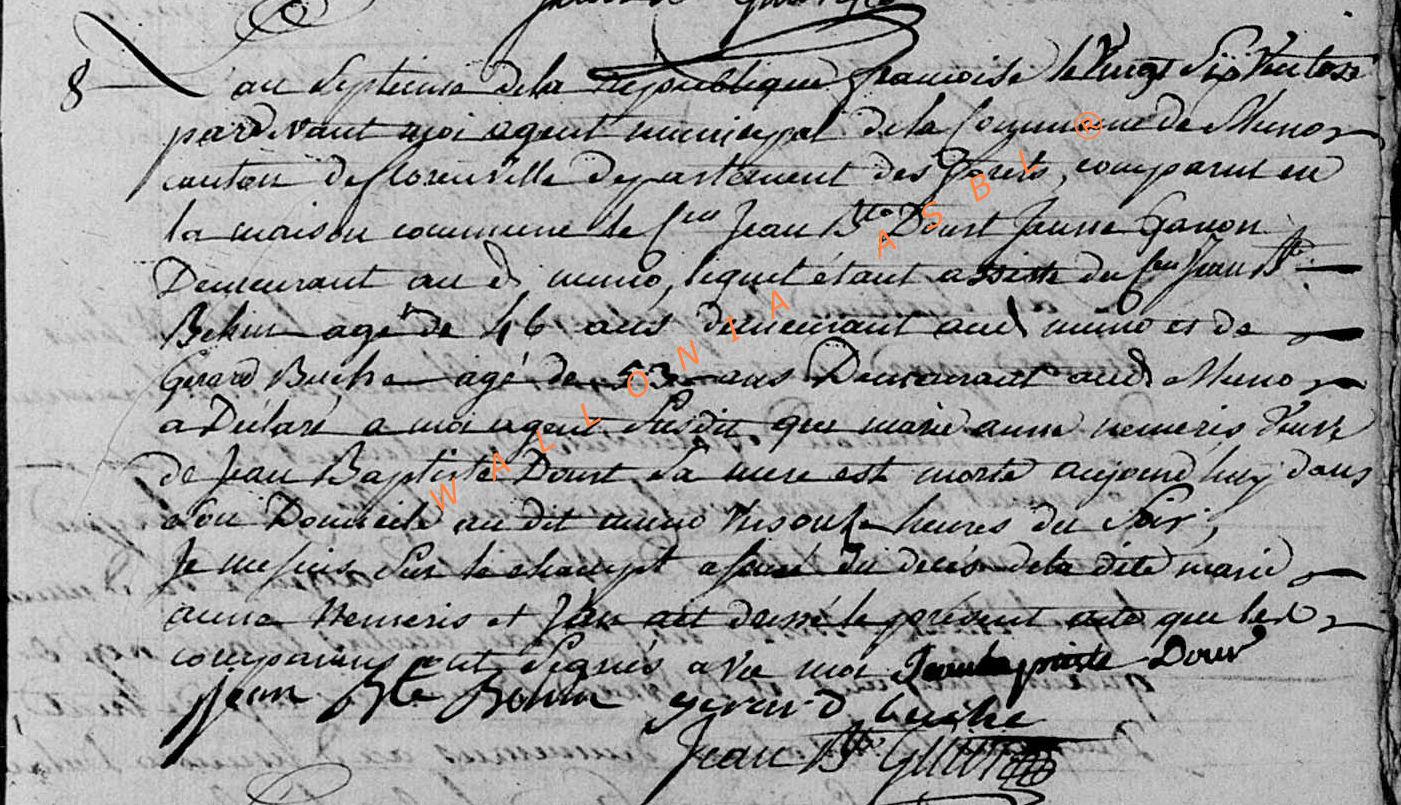 8 L'an Septieme dela republique francoise le Vingt Six Ventose
pardevant moi agent municipal dela Commune de Muno
canton de florenville departement des forets, comparut en
la maison commune le Cen Jean Bte Dourt Jeune Garson
Demeurant au d muno, lequel étant assisté du Cen Jean Bte
agé de 46 ans demeurant aud muno et de
Gerard Buche agé de 53 ans Demeurant aud Muno
a Déclaré a moi agent Susdit que marie anne nemeris Veuve
de Jean Baptiste Dourt sa mere est morte aujourd'huy dans
son Domicile au dit muno heures du Soir,
Je me suis Sur le champt assuré du decés dela dite marie
anne Nemeris et J'en ait dressé le présent acte que les
comparans ont Signés avec moi Jean baptiste Dour
jean Bte gerard buche
Jean Bte
WALLONIA ASBL ®